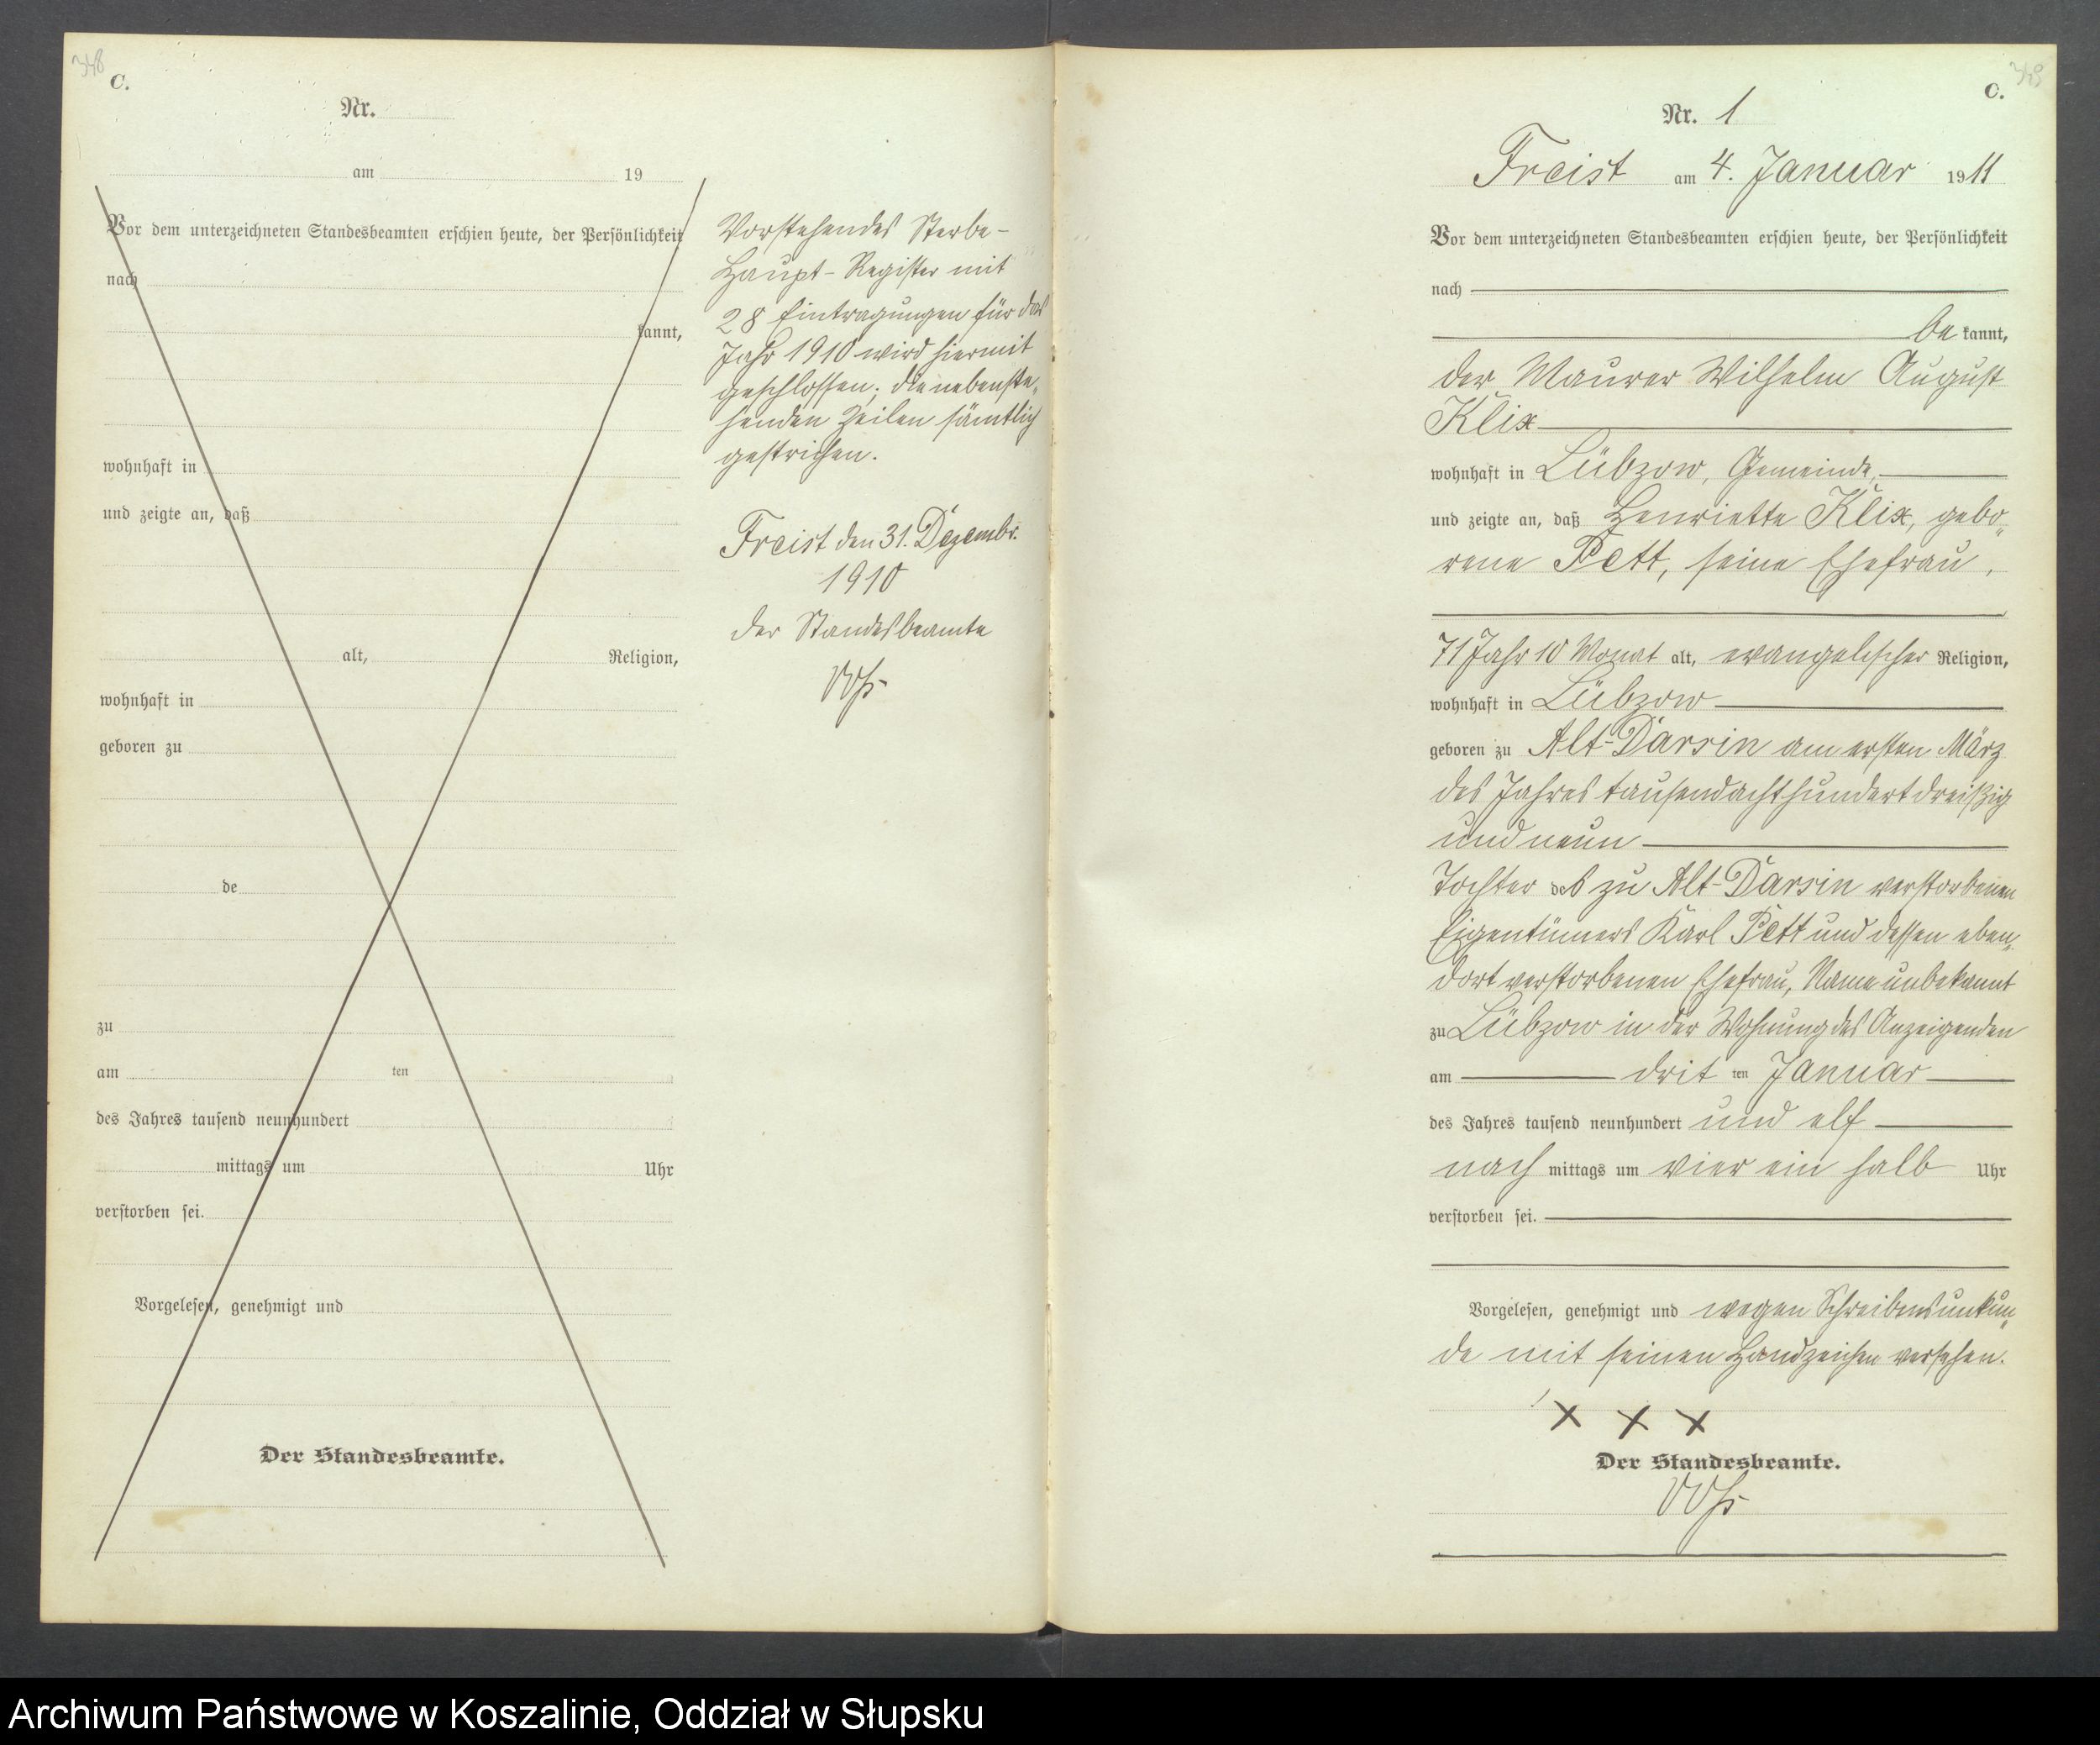 348
C.
Nr.
am 19
Vor dem unterzeichneten Standesbeamten erschien heute, der Persönlichkeit
nach
kannt,
wohnhaft in
und zeigte an, daß
alt, Religion,
wohnhaft in
geboren zu
de
zu
am ten
des Jahres tausend neunhundert
mittags um Uhr
verstorben sei.
Vorgelesen, genehmigt und
Der Standesbeamte.
Vorstehendes Sterbe-
Haupt-Register mit
28 Eintragungen für das
Jahr 1910 wird hiermit
geschlossen; die nebenste-
henden Zeilen sämtlich
gestrichen.
Freist den 31. Dezembr.
1910
Der Standesbeamte
349
C.
Nr. 1
Freist am 4. Januar 1911
Vor dem unterzeichneten Standesbeamten erschien heute, der Persönlichkeit
nach
be kannt,
der Maurer Wilhelm August
Klix
wohnhaft in Lübzow, Gemeinde,
und zeigte an, daß Henriette Klix, gebo-
rene Pett, seine Ehefrau,
71 Jahr 10 Monat alt, evangelischer Religion,
wohnhaft in Lübzow
geboren zu Alt-Darsin am ersten März
des Jahres tausendachthundertdreißig
und neun
Tochter des zu Alt-Darsin verstorbenen
Eigentümers Karl Pett und dessen eben-
dort verstorbenen Ehefrau, Name unbekannt
zu Lübzow in der Wohnung des Anzeigenden
am drit ten Januar
des Jahres tausend neunhundert und elf
nach mittags um vier ein halb Uhr
verstorben sei.
Vorgelesen, genehmigt und wegen Schreibensunkun-
de mit seinen Handzeichen versehen.
x x x
Der Standesbeamte.
Archiwum Państwowe w Koszalinie, Oddział w Słupsku